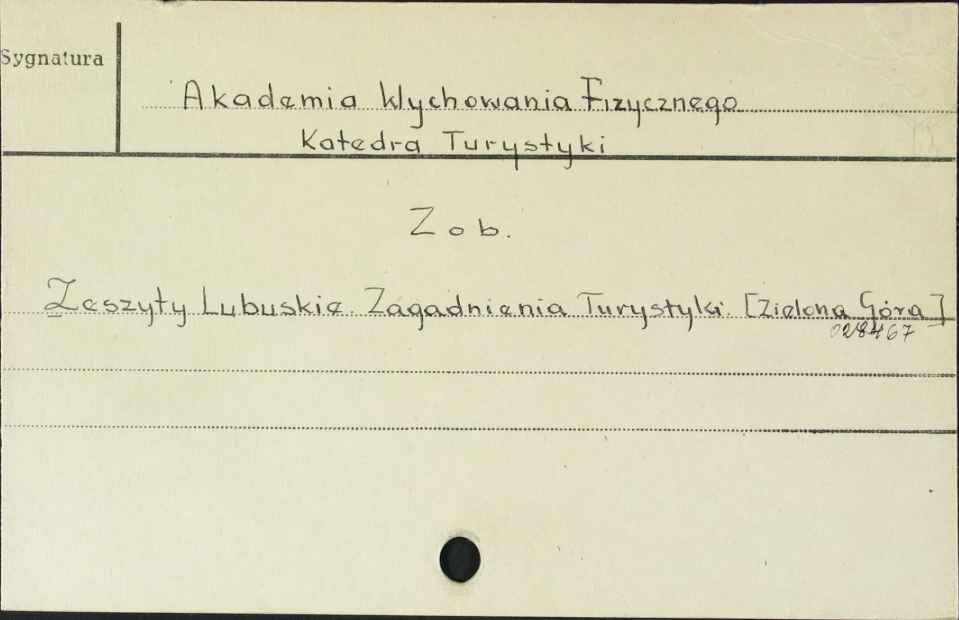 Sygnatura
Akademia Wychowania Fizycznego
Katedra Turystyki
Zob.
Zeszyty Lubuskie. Zagadnienia Turystyki. [Zielona Góra]
028467